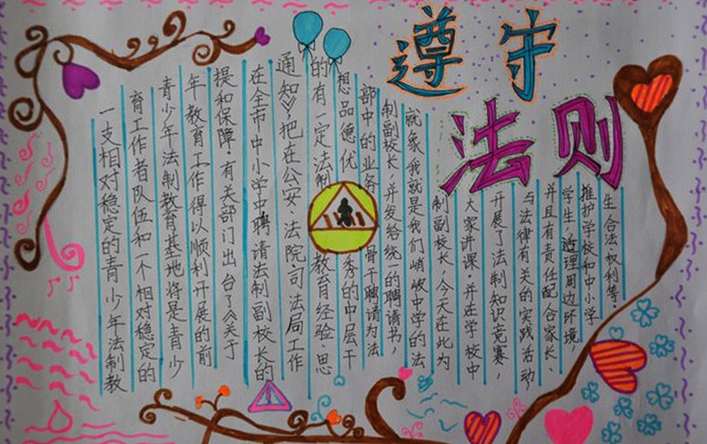 遵守
法则
一支相对稳定的青少年法制教
育工作者队伍和一个相对稳定的
青少年法制教育基地将是青少
年教育工作得以顺利开展的前
提和保障,有关部门出台了《关于
在全市中小学中聘请法制副校长的
通知》,把在公安、法院司法局工作
的有一定法制教育经验,思
想品德优秀的中层干
部中的业务骨干聘请为法
制副校长,并发给统一的聘请书,
就象我就是我们峭岐中学的法
制副校长,今天在此为
大家讲课,并在学校中
开展了法制知识竞赛,
与法律有关的实践活动
并且有责任配合家长、
学生,治理周边环境
推护学校和中小学
生合法权利等.